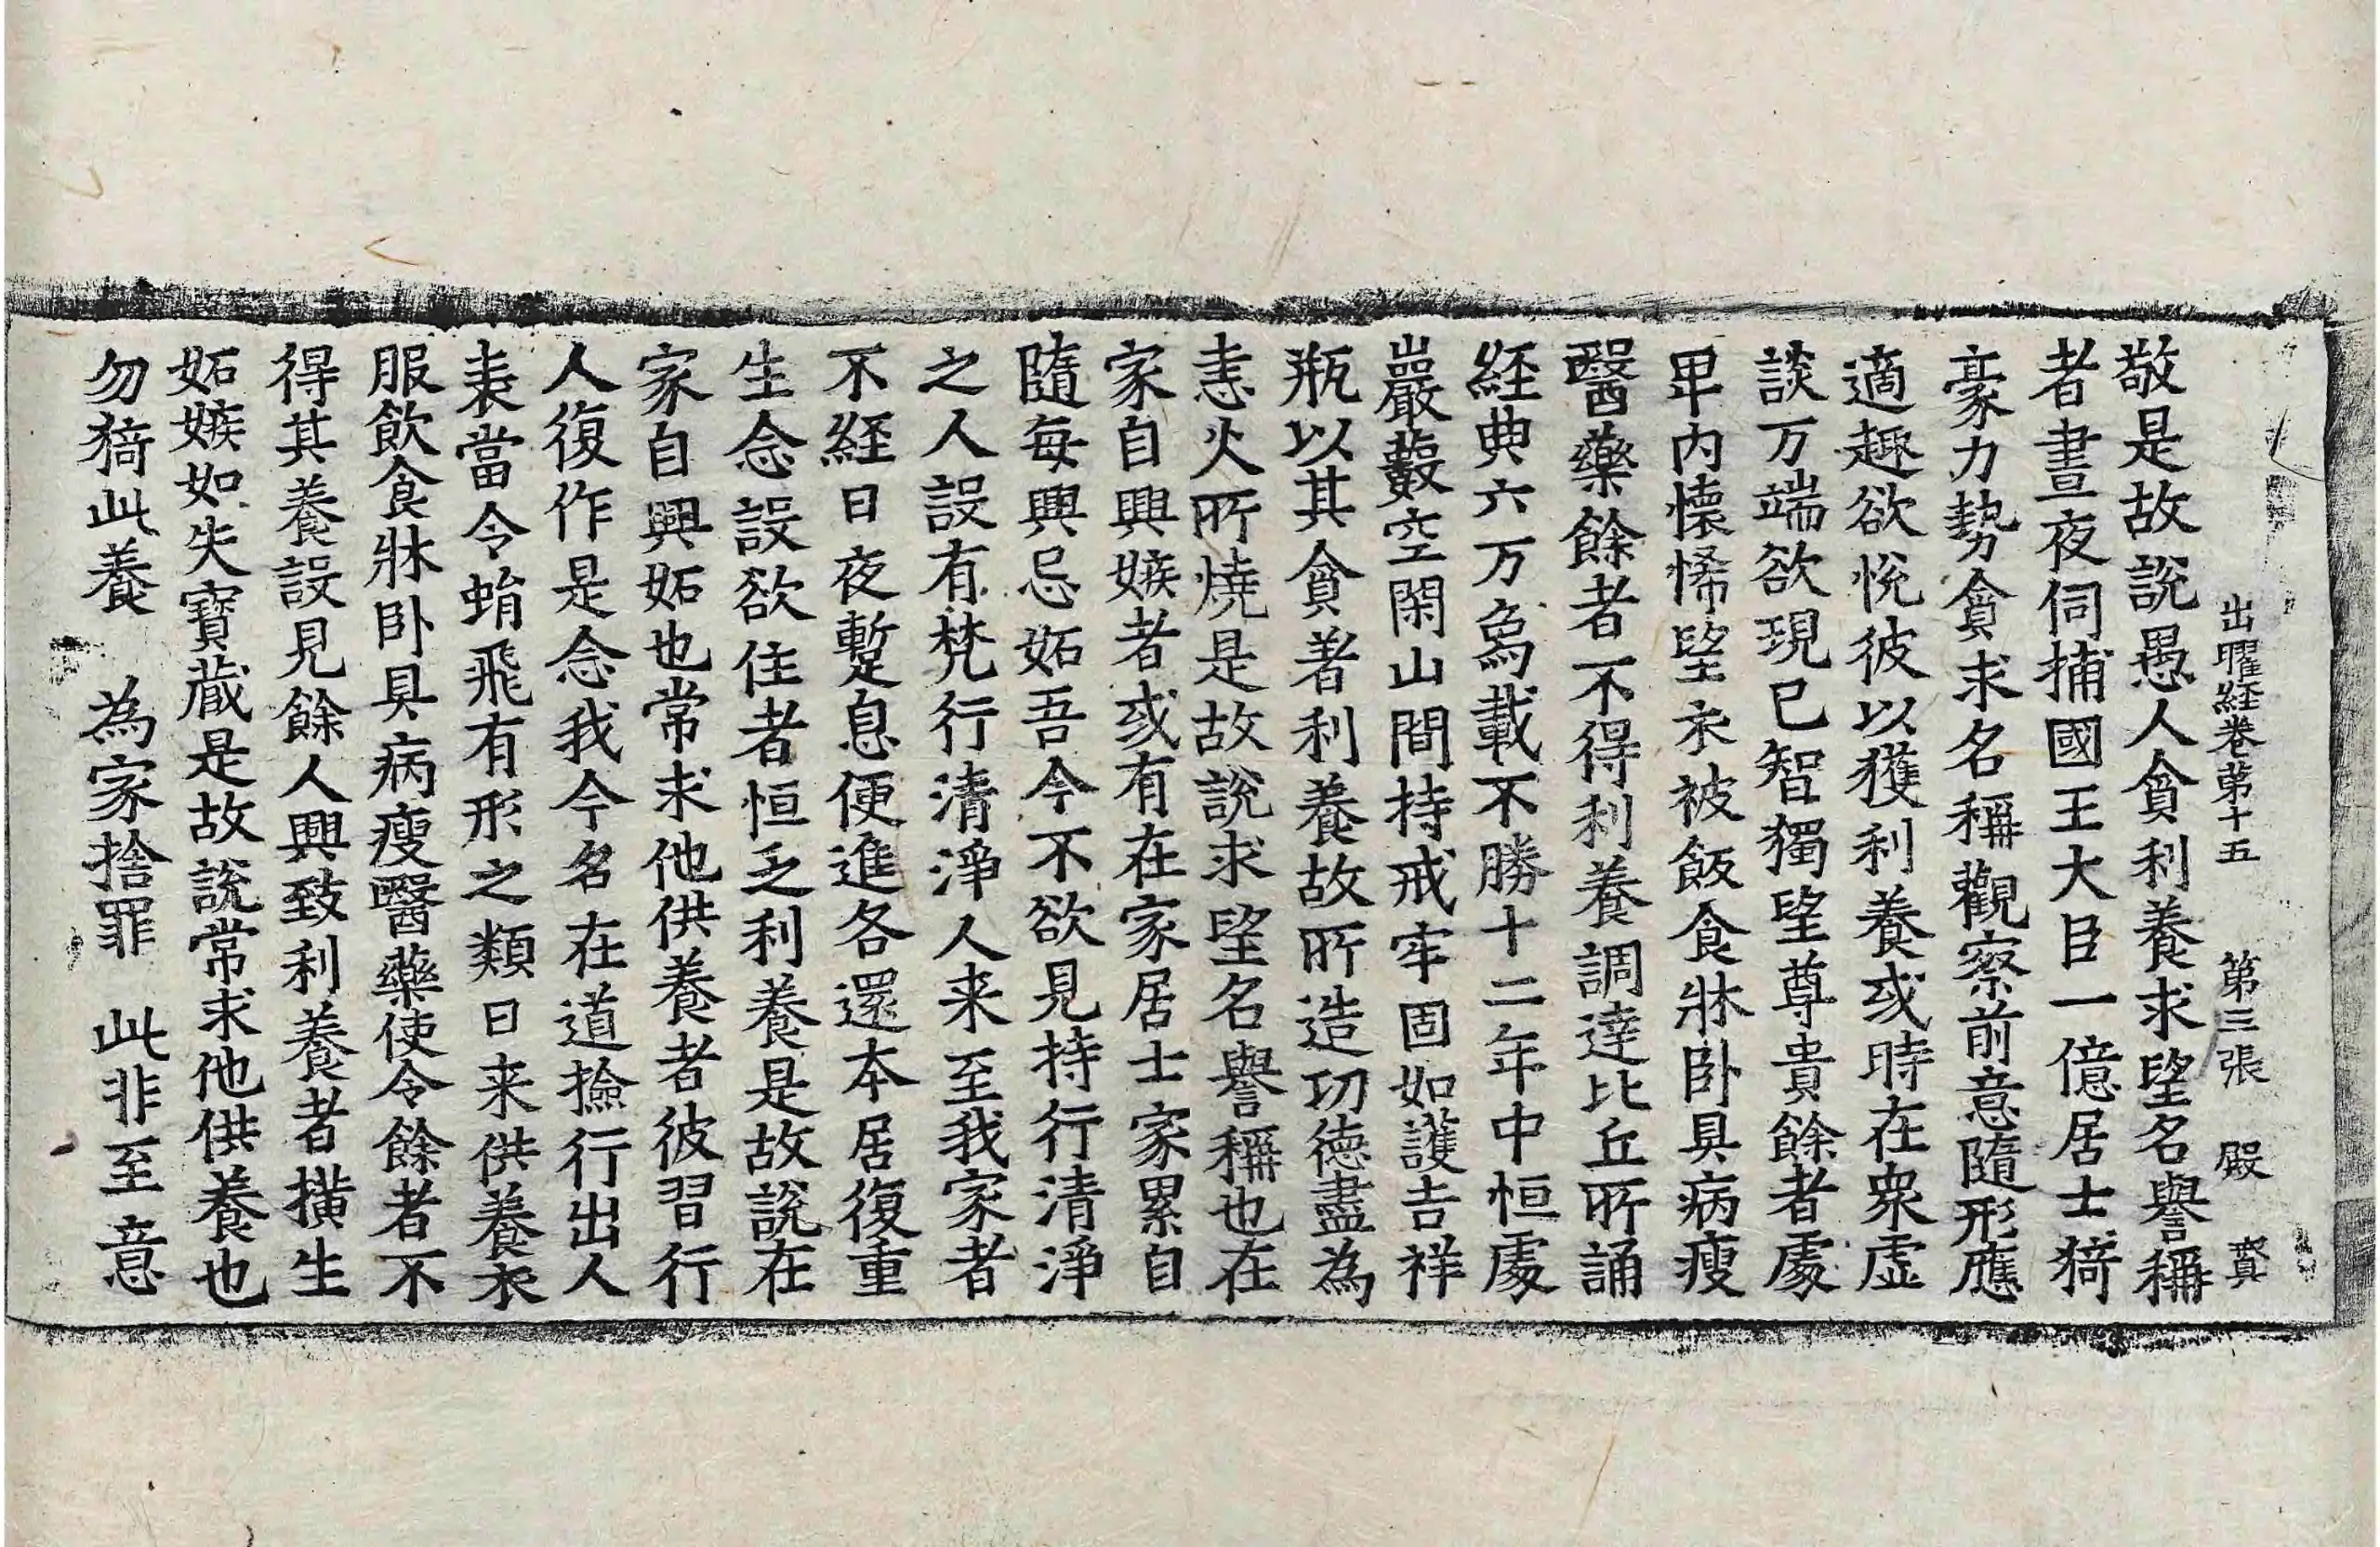 出曜経卷苐十五 第三張 殿 賔
敬是故說愚人貪利養求望名譽稱
者晝夜伺捕國王大臣一億居士猗
豪力勢貪求名稱觀察前意隨形應
適趣欲悅彼以獲利養或時在衆虛
談万端欲現已智獨望尊貴餘者處
甲內懷悕望衣被飯食牀卧具病瘦
醫藥餘者不得利養調達比丘所誦
経典六万為載不勝十二年中恒處
巖藪空閑山間持戒牢固如護吉祥
瓶以其貪著利養故所造功德盡為
恚火所燒是故說求望名譽稱也在
家自興嫉者或有在家居士家累自
隨每興忌妬吾今不欲見持行清淨
之人設有梵行清淨人来至我家者
不経日夜暫息便進各還本居復重
生念設欲住者恒乏利養是故說在
家自興妬也常求他供養者彼習行
人復作是念我今名在道撿行出人
表當令蜎飛有形之類日来供養衣
服飲食牀卧具病瘦醫藥使令餘者不
得其養設見餘人興致利養者橫生
妬嫉如失寶藏是故說常求他供養也
勿猗此養 為家捨罪 此非至意